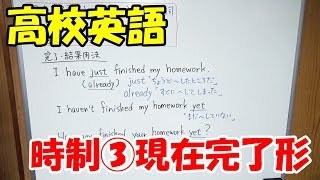 高校英語
完了・結果用法
I have just finished my homework.
(already) just "ちょうど〜したところだ"
already "すでに〜してしまった"
I haven't finished my homework yet
"まだ〜していない"
finished your homework yet?
時制③現在完了形